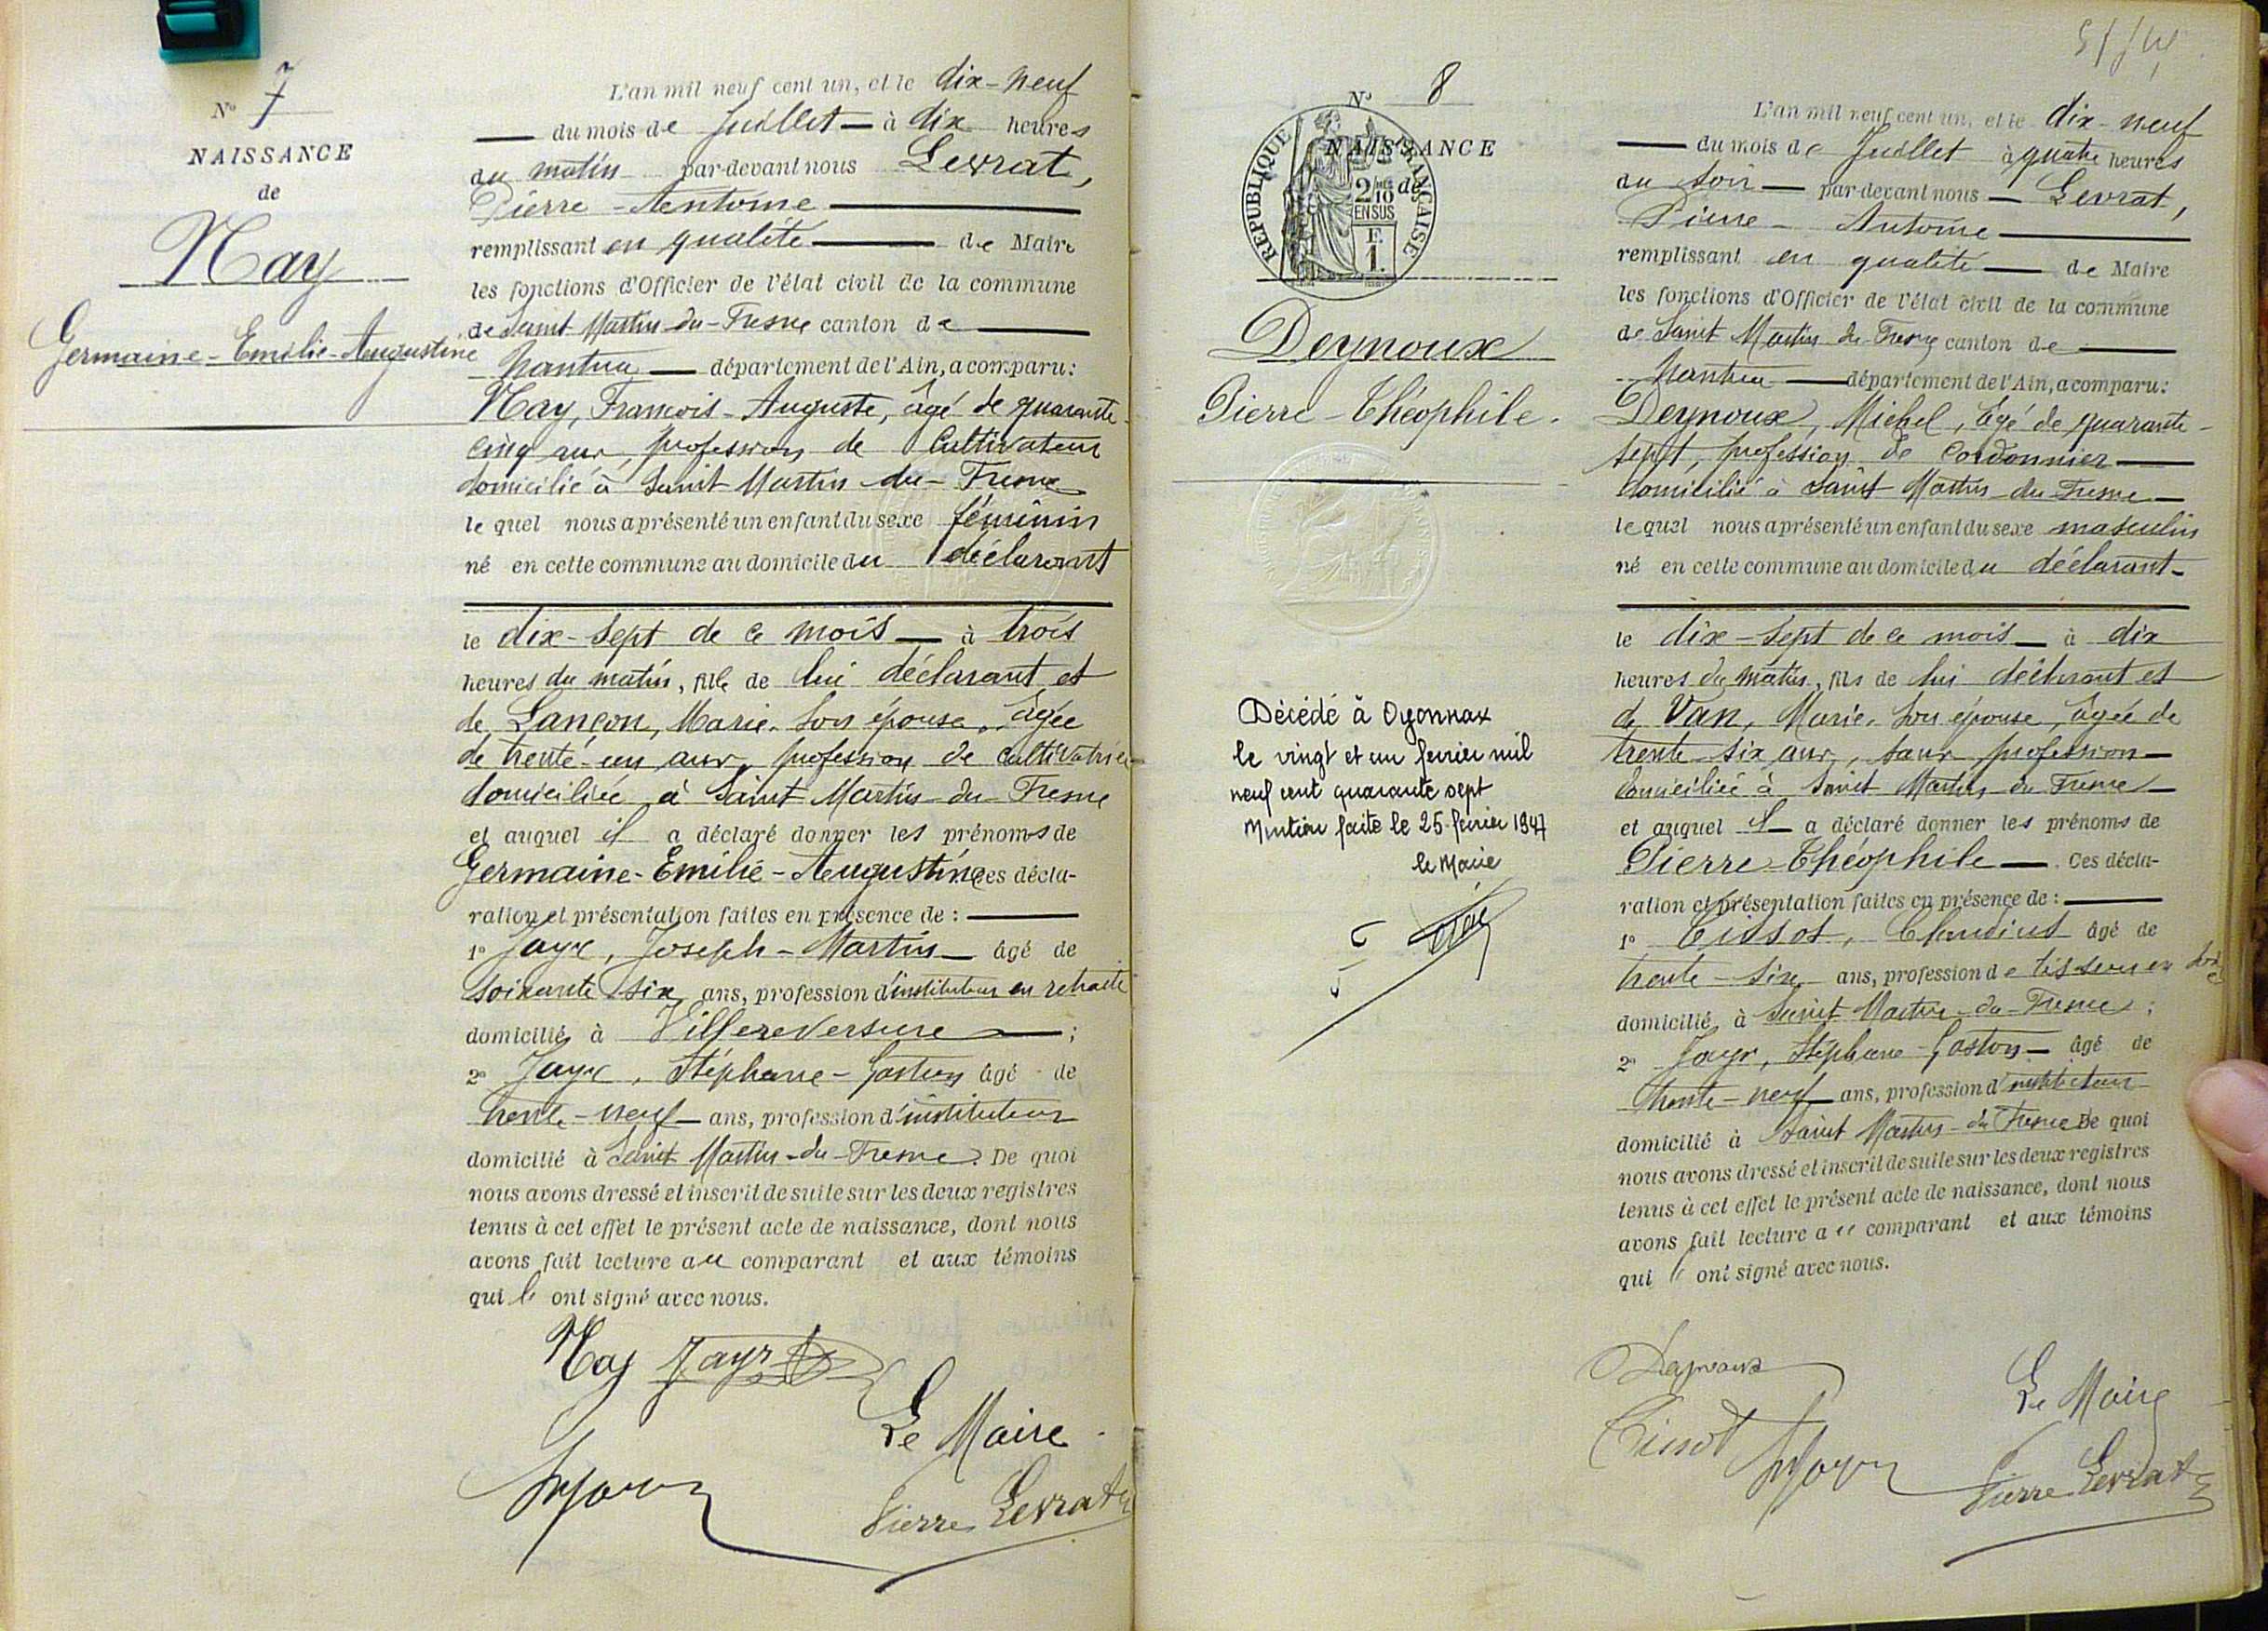 N° 7
NAISSANCE
de
Nay
Germaine-Emilie-Augustine
L'an mil neuf cent un, et le dix-neuf
du mois de Juillet à dix heures
du matin par-devant nous Levrat,
Pierre-Antoine
remplissant en qualité de Maire
les fonctions d'Officier de l'état civil de la commune
de Saint Martin-du-Fresne canton de
Nantua département de l'Ain, a comparu:
Nay, François-Auguste, âgé de quarante
cinq ans, profession de Cultivateur
domicilié à Saint-Martin-du-Fresne
le quel nous a présenté un enfant du sexe féminin
né en cette commune au domicile du déclarant
le dix-sept de ce mois à trois
heures du matin, fille de lui déclarant et
de Lançon, Marie, son épouse, âgée
de trente-un ans, profession de cultivatrice
domiciliée à Saint Martin-du-Fresne
et auquel il a déclaré donner les prénoms de
Germaine-Emilie-Augustine Ces décla-
ration et présentation faites en présence de :
1° Jayr, Joseph-Martin âgé de
soixante six ans, profession d'instituteur en retraite
domicilié à Villereversure ;
2° Jayr, Stéphane-Gaston âgé de
trente-neuf ans, profession d'instituteur
domicilié à Saint Martin-du-Fresne. De quoi
nous avons dressé et inscrit de suite sur les deux registres
tenus à cet effet le présent acte de naissance, dont nous
avons fait lecture au comparant et aux témoins
qui ont signé avec nous.
Nay Jayr
Le Maire
Pierre Levrat
N° 8
NAISSANCE
de
REPUBLIQUE FRANÇAISE
2/10
EN SUS
F.
1.
Deynoux
Pierre-Théophile.
Décédé à Oyonnax
le vingt et un fevrier mil
neuf cent quarante sept
Mention faite le 25 fevrier 1947
le Maire
L'an mil neuf cent un, et le dix-neuf
du mois de Juillet à quatre heures
du soir par-devant nous Levrat,
Pierre-Antoine
remplissant en qualité de Maire
les fonctions d'Officier de l'état civil de la commune
de Saint Martin du Fresne canton de
Nantua département de l'Ain, a comparu:
Deynoux, Michel, âgé de quarante-
sept, profession de Cordonnier
domicilié à Saint Martin-du-Fresne
le quel nous a présenté un enfant du sexe masculin
né en cette commune au domicile du déclarant
le dix-sept de ce mois à dix
heures du matin, fils de lui déclarant et
de Van, Marie, son épouse, âgée de
trente six ans, sans profession
domiciliée à Saint Martin du Fresne
et auquel il a déclaré donner les prénoms de
Pierre-Théophile Ces décla-
ration et présentation faites en présence de :
1° Tissot, Claudius âgé de
trente-six ans, profession de tisseur en soie
domicilié à Saint Martin-du-Fresne ;
2° Jayr, Stéphane-Gaston âgé de
trente-neuf ans, profession d'instituteur
domicilié à Saint Martin-du-Fresne De quoi
nous avons dressé et inscrit de suite sur les deux registres
tenus à cet effet le présent acte de naissance, dont nous
avons fait lecture au comparant et aux témoins
qui ont signé avec nous.
Deynoux
Le Maire
Tissot
Pierre Levrat